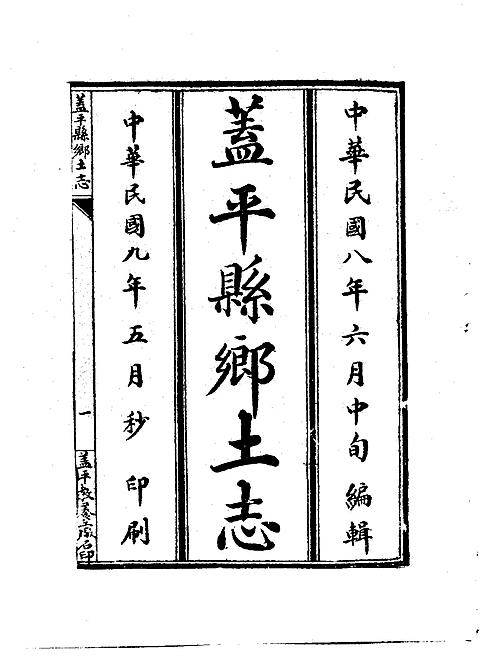 中華民國八年六月中旬編輯
蓋平縣鄉土志
中華民國九年五月秒印刷
蓋平縣鄉土志
一
蓋平教養工廠石印